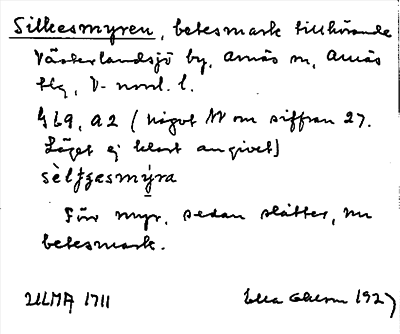 Silkesmyren, betesmark tillhörande
Västerlandsjö by, Arnäs sn, Arnäs
tlg, V-norrl. l.
G69, a2 (något N om siffran 27.
Läget ej klart angivet)
Förr myr, sedan slåtter, nu
betesmark.
ULMA 1711 1927